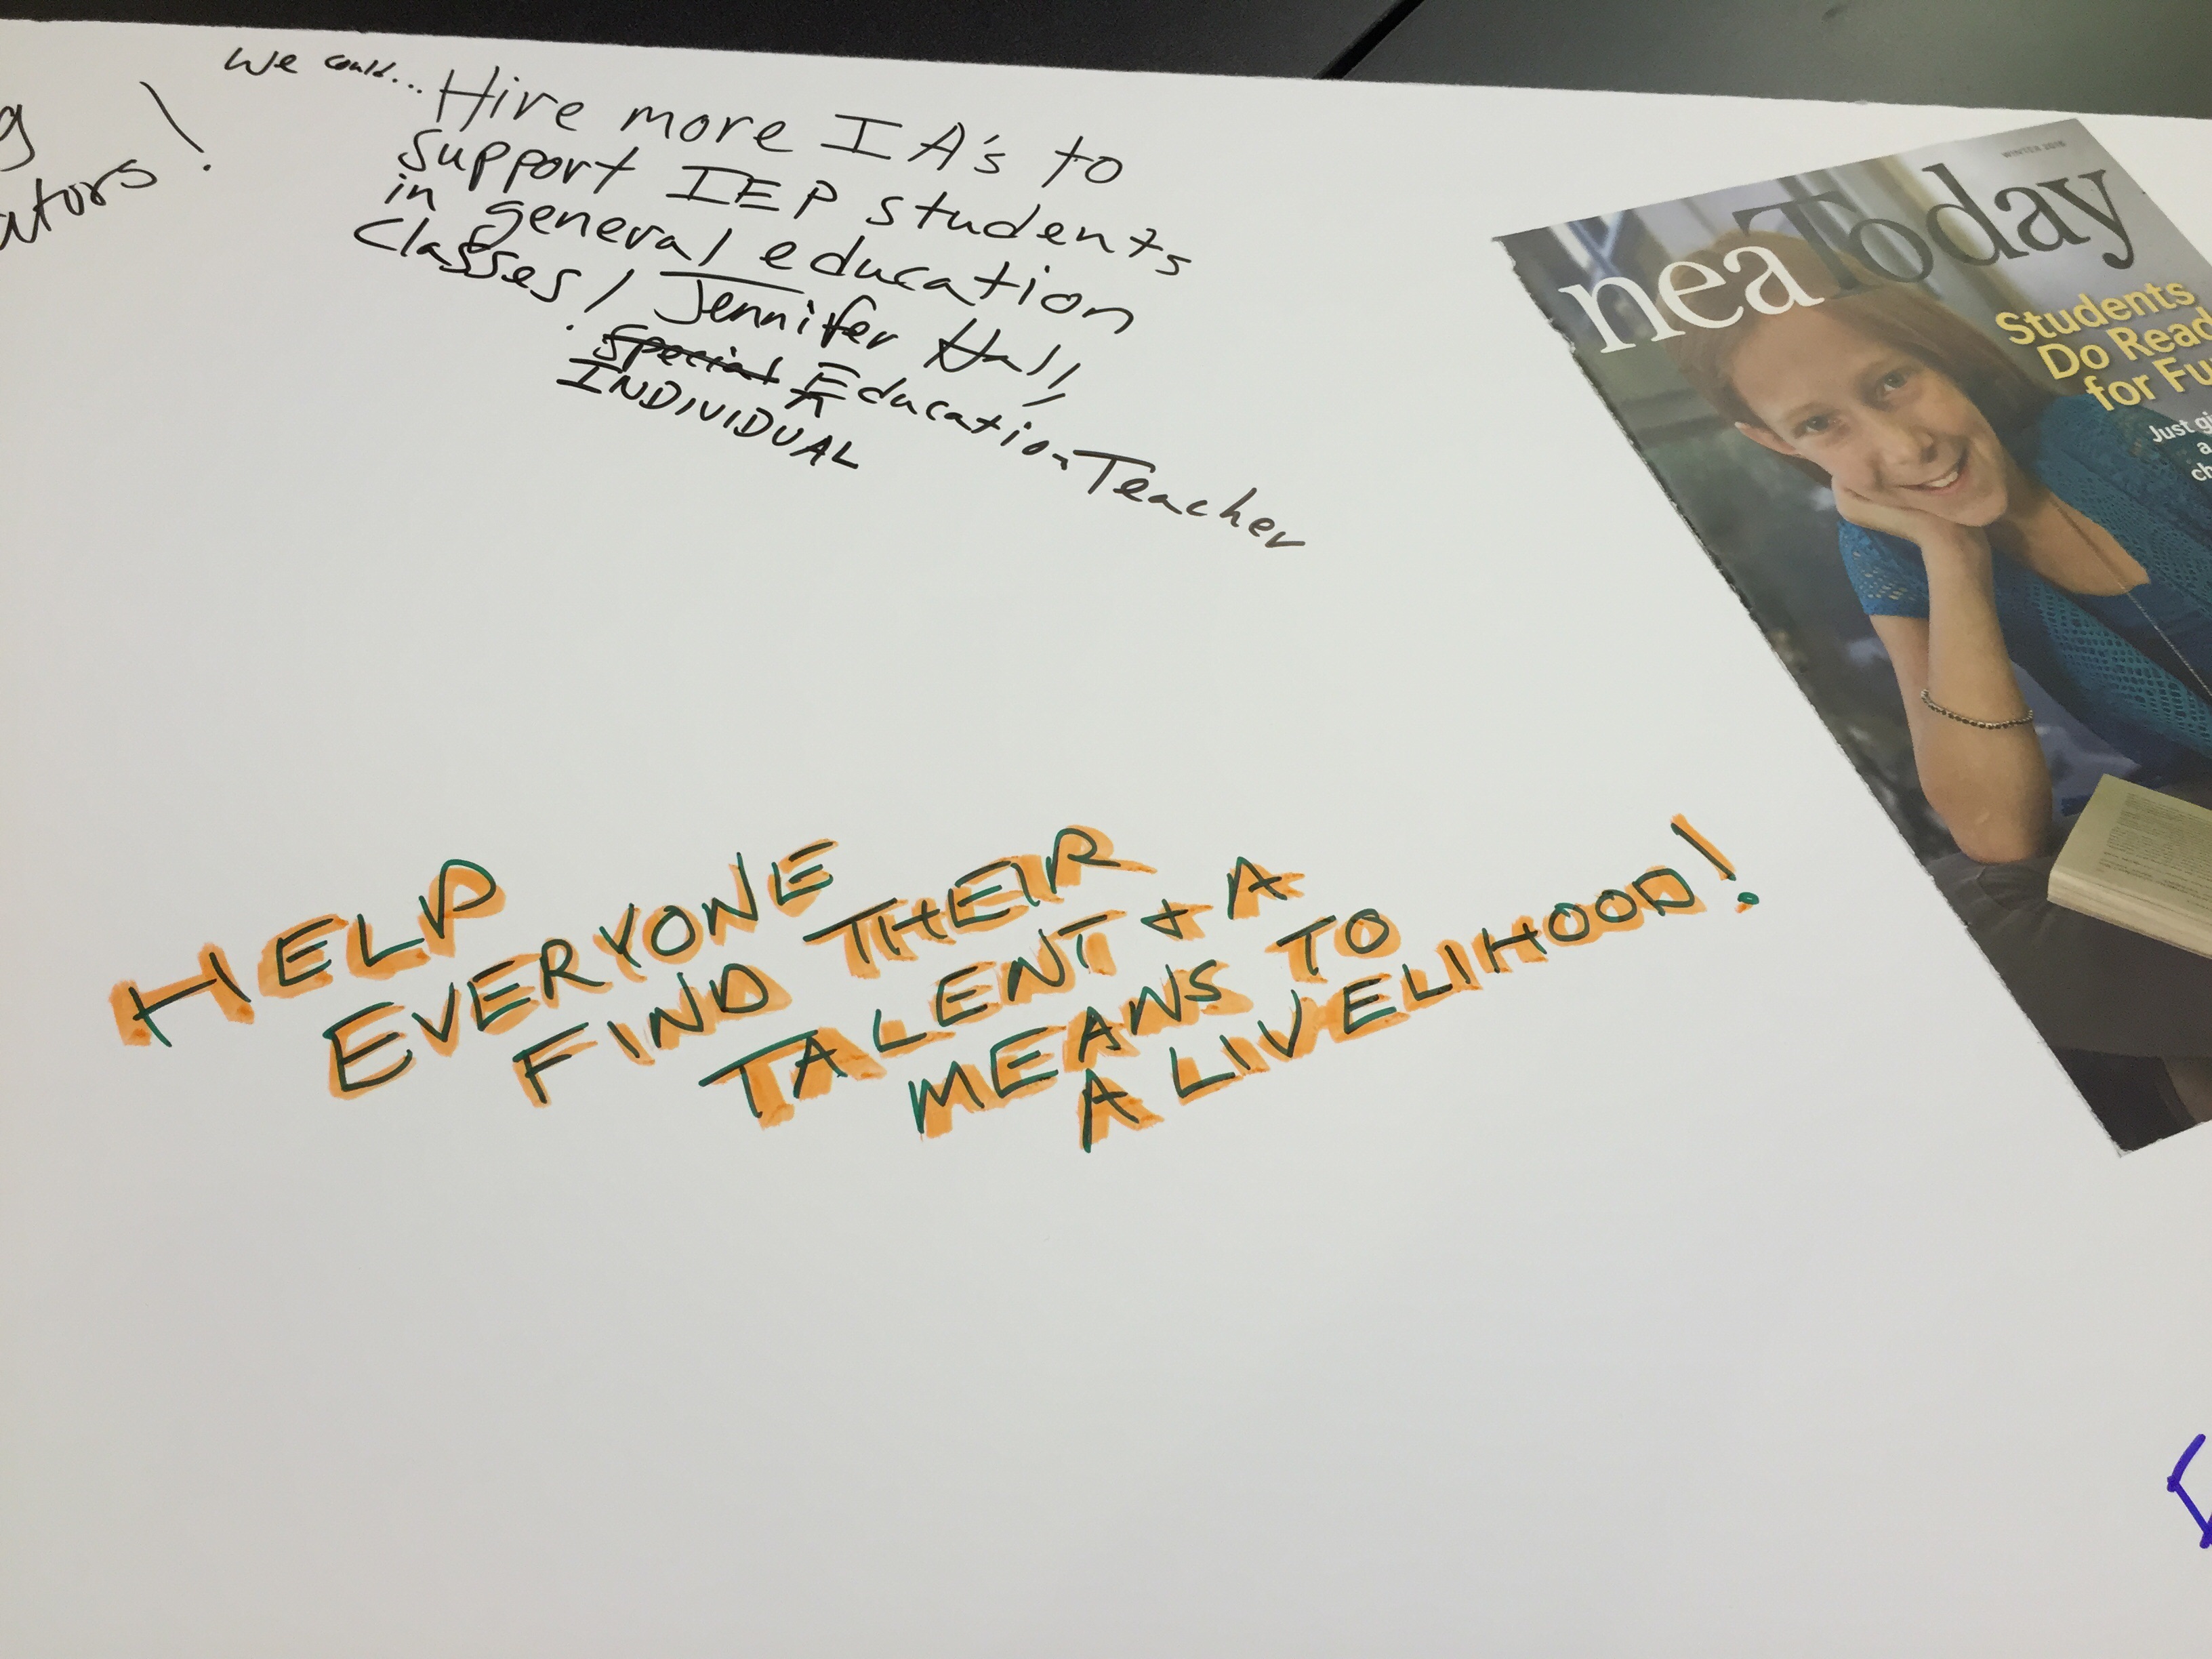 We could... Hire more IA's to
support IEP students
in general education
classes! Jennifer Hall
Special Education Teacher
INDIVIDUAL
HELP
EVERYONE
FIND THEIR
TALENT + A
MEANS TO
A LIVELIHOOD!
WINTER 2016
neaToday
Students
Do Read
for Fu
Just gi
a
ch
g
ators!